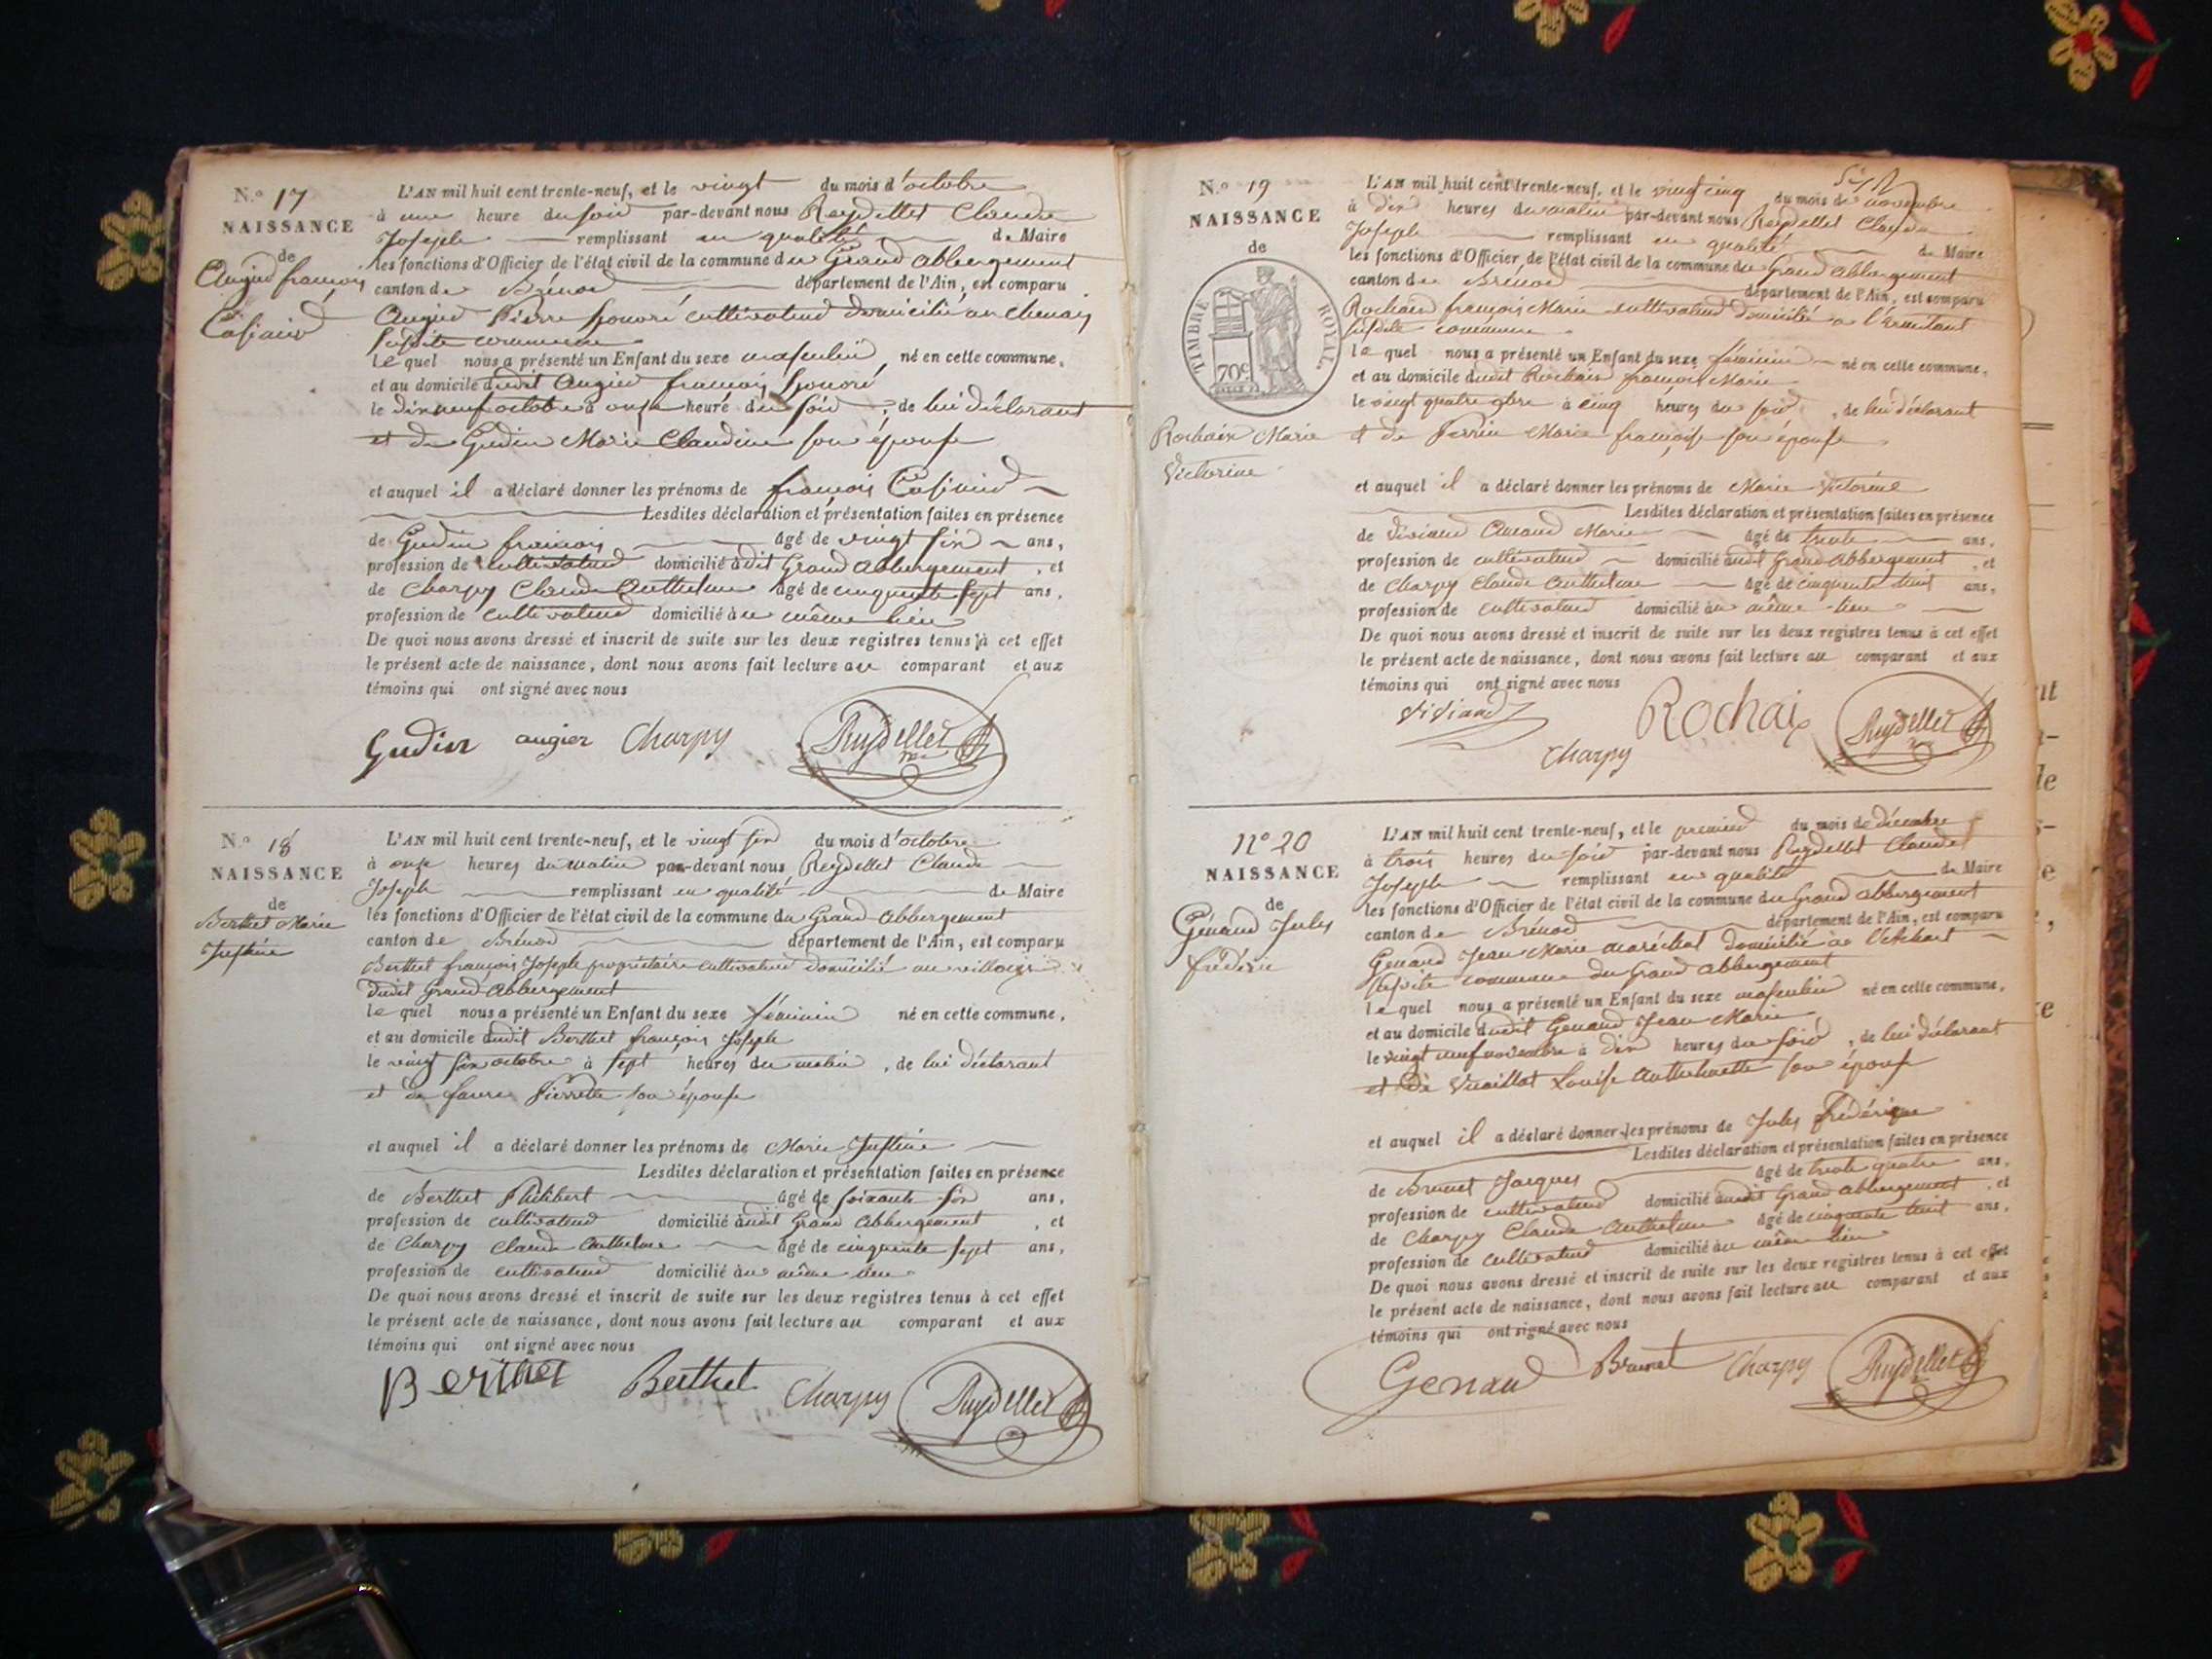 N.o 17
NAISSANCE
de
Augier françois
Casimir
L'AN mil huit cent trente-neuf, et le vingt du mois d'octobre
à une heure du soir par-devant nous Reydellet Claude
Joseph remplissant en qualité de Maire
les fonctions d'Officier de l'état civil de la commune du Grand abbergement
canton de Brénod département de l'Ain, est comparu
Augier Pierre honoré cultivateur domicilié au chenais
susdite commune
lequel nous a présenté un Enfant du sexe masculin, né en cette commune,
et au domicile dudit Augier françois honoré
le dix neuf octobre à onze heure du soir, de lui déclarant
et de Gudin Marie Claudine son épouse
et auquel il a déclaré donner les prénoms de françois Casimir
Lesdites déclaration et présentation faites en présence
de Gudin françois âgé de vingt six ans,
profession de cultivateur domicilié audit Grand abbergement, et
de Charpy Claude Anthelme âgé de cinquante sept ans,
profession de cultivateur domicilié au même lieu
De quoi nous avons dressé et inscrit de suite sur les deux registres tenus à cet effet
le présent acte de naissance, dont nous avons fait lecture au comparant et aux
témoins qui ont signé avec nous
Gudin augier Charpy Reydellet
N.o 18
NAISSANCE
de
Berthet Marie
Justine
L'AN mil huit cent trente-neuf, et le vingt six du mois d'octobre
à onze heures du matin par-devant nous Reydellet Claude
Joseph remplissant en qualité de Maire
les fonctions d'Officier de l'état civil de la commune du Grand abbergement
canton de Brénod département de l'Ain, est comparu
Berthet françois Joseph propriétaire cultivateur domicilié au village
dudit Grand abbergement
lequel nous a présenté un Enfant du sexe féminin né en cette commune,
et au domicile dudit Berthet françois Joseph
le vingt six octobre à sept heures du matin, de lui déclarant
et de favre Pierrette son épouse
et auquel il a déclaré donner les prénoms de Marie Justine
Lesdites déclaration et présentation faites en présence
de Berthet Philibert âgé de soixante six ans,
profession de cultivateur domicilié audit Grand abbergement, et
de Charpy Claude Anthelme âgé de cinquante sept ans,
profession de cultivateur domicilié au même lieu
De quoi nous avons dressé et inscrit de suite sur les deux registres tenus à cet effet
le présent acte de naissance, dont nous avons fait lecture au comparant et aux
témoins qui ont signé avec nous
Berthet Berthet Charpy Reydellet
N.o 19
NAISSANCE
de
TIMBRE ROYAL.
70c
Rochaix Marie
Victorine
L'AN mil huit cent trente-neuf, et le vingt cinq du mois de novembre
à dix heures du matin par-devant nous Reydellet Claude
Joseph remplissant en qualité de Maire
les fonctions d'Officier de l'état civil de la commune du Grand abbergement
canton de Brénod département de l'Ain, est comparu
Rochaix françois Marie cultivateur domicilié à
susdite commune
lequel nous a présenté un Enfant du sexe féminin né en cette commune,
et au domicile dudit Rochaix françois Marie
le vingt quatre 9bre à cinq heures du soir, de lui déclarant
et de Perrin Marie françoise son épouse
et auquel il a déclaré donner les prénoms de Marie Victorine
Lesdites déclaration et présentation faites en présence
de Viviand Amand Marie âgé de trente ans,
profession de cultivateur domicilié audit Grand abbergement, et
de Charpy Claude Anthelme âgé de cinquante huit ans,
profession de cultivateur domicilié au même lieu
De quoi nous avons dressé et inscrit de suite sur les deux registres tenus à cet effet
le présent acte de naissance, dont nous avons fait lecture au comparant et aux
témoins qui ont signé avec nous
Viviand Rochaix Reydellet
Charpy
No 20
NAISSANCE
de
Génand Jules
frédéric
L'AN mil huit cent trente-neuf, et le premier du mois de décembre
à trois heures du soir par-devant nous Reydellet Claude
Joseph remplissant en qualité de Maire
les fonctions d'Officier de l'état civil de la commune du Grand abbergement
canton de Brénod département de l'Ain, est comparu
Genand Jean Marie maréchal domicilié à
susdite commune du Grand abbergement
lequel nous a présenté un Enfant du sexe masculin né en cette commune,
et au domicile dudit Genand Jean Marie
le vingt neuf novembre à dix heures du soir, de lui déclarant
et de Vuaillat Louise Anthelmette son épouse
et auquel il a déclaré donner les prénoms de Jules frédérique
Lesdites déclaration et présentation faites en présence
de Brunet Jacques âgé de trente quatre ans,
profession de cultivateur domicilié audit Grand abbergement, et
de Charpy Claude Anthelme âgé de cinquante huit ans,
profession de cultivateur domicilié au même lieu
De quoi nous avons dressé et inscrit de suite sur les deux registres tenus à cet effet
le présent acte de naissance, dont nous avons fait lecture au comparant et aux
témoins qui ont signé avec nous
Genand Brunet Charpy Reydellet